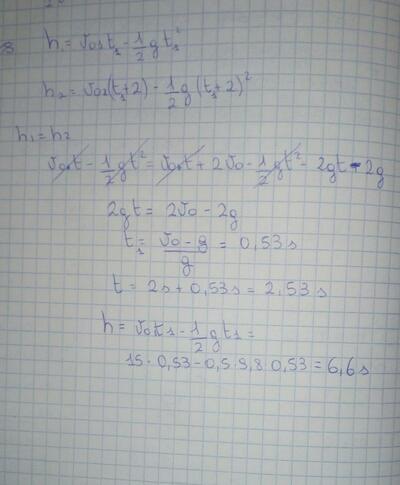 8 h₁ = v₀₁t₁ - 1/2 gt₁²
h₂ = v₀₁(t₁+2) - 1/2 g (t₁+2)²
h₁ = h₂
v₀t - 1/2 gt² = v₀t + 2v₀ - 1/2 gt² - 2gt - 2g
2gt = 2v₀ - 2g
t₁ = v₀ - g / g = 0,53 s
t = 2s + 0,53 s = 2,53 s
h = v₀t₁ - 1/2 gt₁ =
15 · 0,53 - 0,5 · 9,8 · 0,53 = 6,6 s